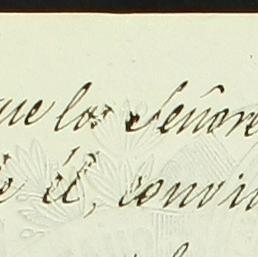 que los Señore
de él, convi